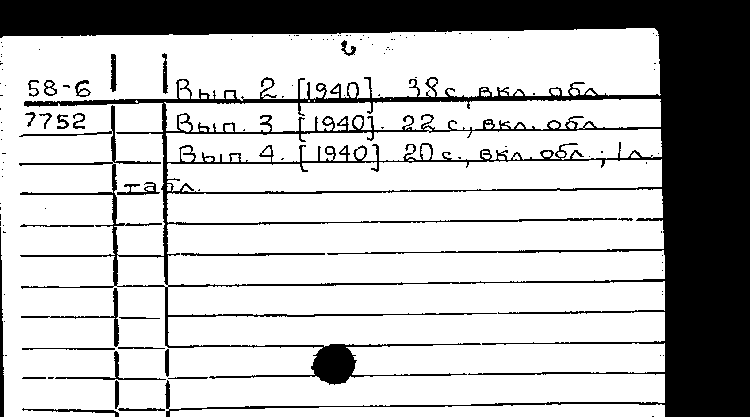 58-6 Вып. 2. [1940]. 38 с., вкл. обл.
7752 Вып. 3 [1940]. 22 с., вкл. обл.
Вып. 4. [1940]. 20 с., вкл. обл.; 1 л.
табл.